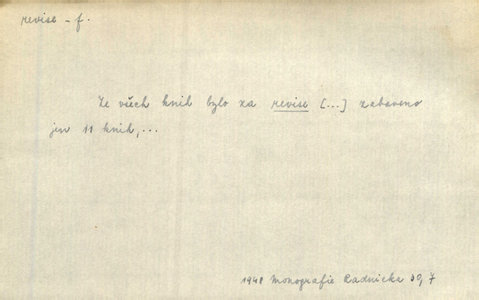 revise – f.
Ze všech knih bylo za revise [...] zabaveno
jen 11 knih,...
1948 Monografie Radnicka 30, 7